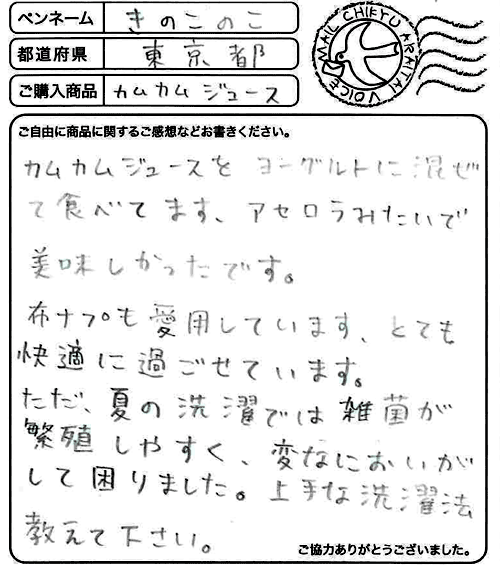 ペンネーム きのこのこ
都道府県 東京都
ご購入商品 カムカムジュース
MAIL CHIKYU ARAITAI VOICE
ご自由に商品に関するご感想などお書きください。
カムカムジュースを ヨーグルトに混ぜ
て食べてます、アセロラみたいで
美味しかったです。
布ナプも愛用しています、とても
快適に過ごせています。
ただ、夏の洗濯では雑菌が
繁殖しやすく、変なにおいが
して困りました。上手な洗濯法
教えて下さい。
ご協力ありがとうございました。